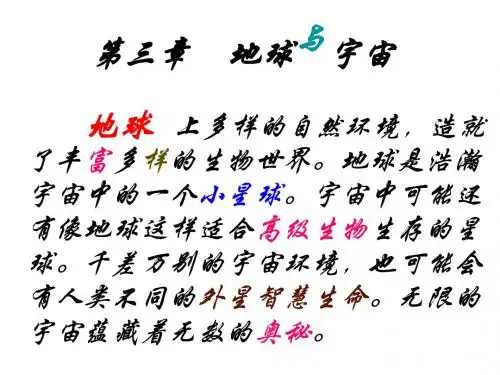 第三章 地球与宇宙
地球 上多样的自然环境，造就
了丰富多样的生物世界。地球是浩瀚
宇宙中的一个小星球。宇宙中可能还
有像地球这样适合高级生物生存的星
球。千差万别的宇宙环境，也可能会
有人类不同的外星智慧生命。无限的
宇宙蕴藏着无数的奥秘。